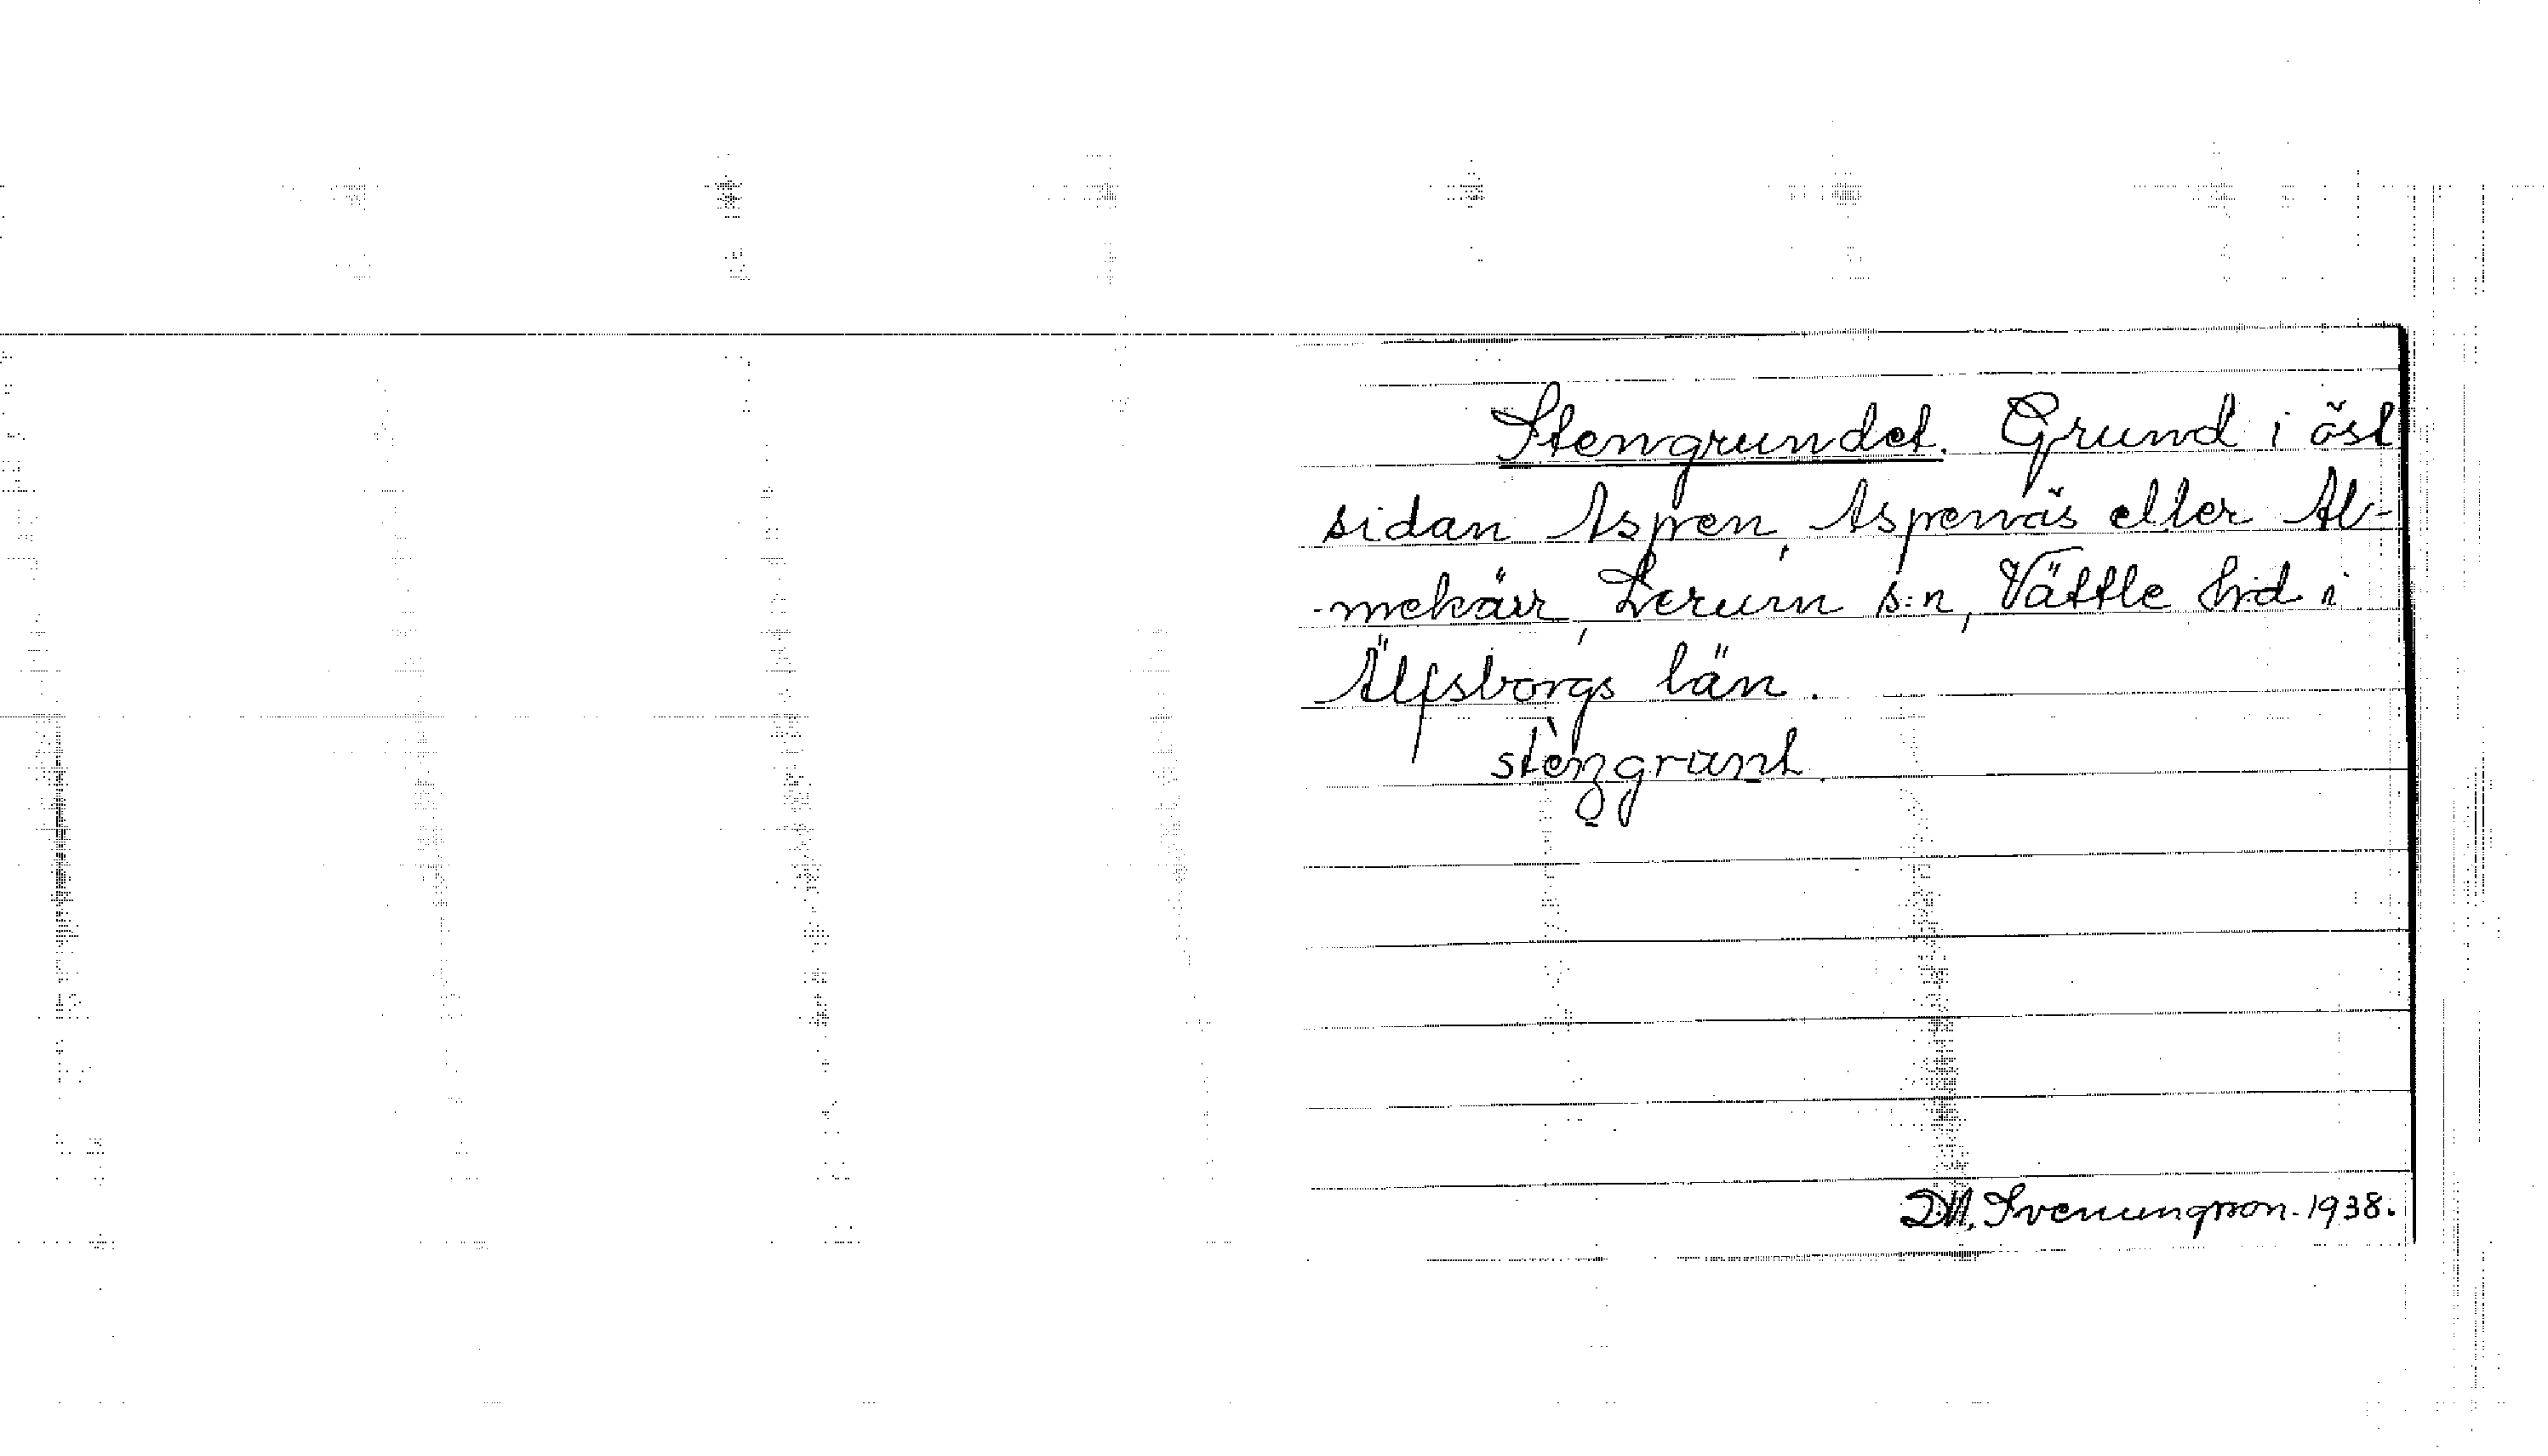 Stengrundet. Grund i öst
sidan Aspen, Aspenäs eller Al-
-mekärr, Lerum s:n, Vättle hd i
Älfsborgs län.
stèngrunt.
D.M. Svenungsson. 1938.